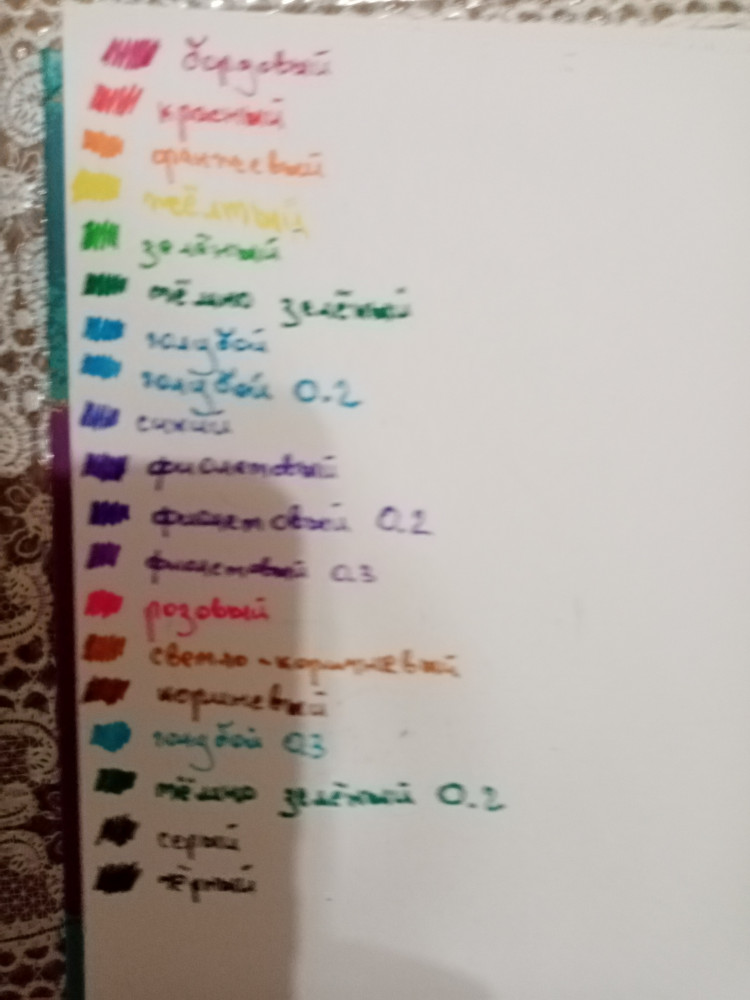 бордовый
красный
оранжевый
жёлтый
зелёный
тёмно зелёный
голубой
голубой 0.2
синий
фиолетовый
фиолетовый 0.2
фиолетовый 0.3
розовый
светло-коричневый
коричневый
голубой 0.3
тёмно зелёный 0.2
серый
чёрный